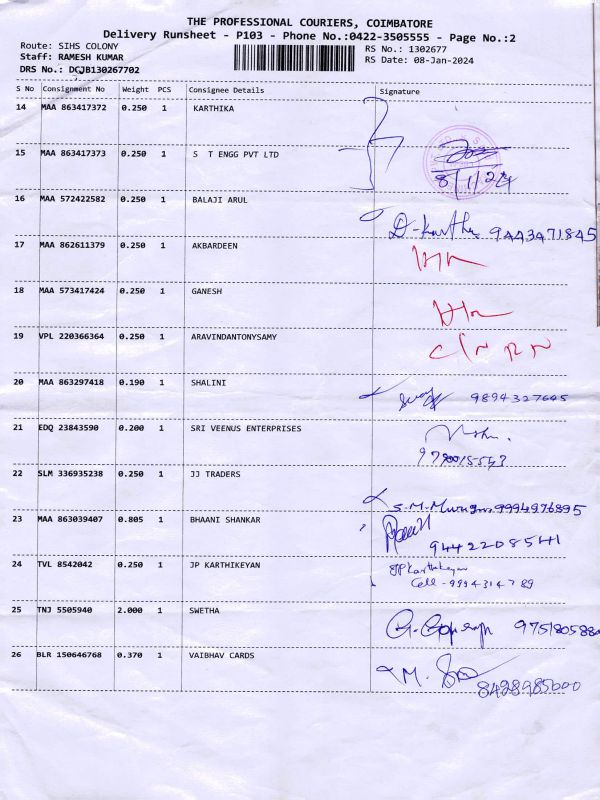 THE PROFESSIONAL COURIERS, COIMBATORE
Delivery Runsheet - P103 - Phone No.:0422-3505555 - Page No.:2
Route: SIHS COLONY
RS No.: 1302677
Staff: RAMESH KUMAR
RS Date: 08-Jan-2024
DRS No.: DCJB130267702
S No Consignment No Weight PCS Consignee Details Signature
14 MAA 863417372 0.250 1 KARTHIKA
15 MAA 863417373 0.250 1 S T ENGG PVT LTD
8/1/24
16 MAA 572422582 0.250 1 BALAJI ARUL
D-Karthi 9443471845
17 MAA 862611379 0.250 1 AKBARDEEN
18 MAA 573417424 0.250 1 GANESH
19 VPL 220366364 0.250 1 ARAVINDANTONYSAMY
20 MAA 863297418 0.190 1 SHALINI
9894327645
21 EDQ 23843590 0.200 1 SRI VEENUS ENTERPRISES
22 SLM 336935238 0.250 1 JJ TRADERS
S.M.Murugan 9994976895
23 MAA 863039407 0.805 1 BHAANI SHANKAR
9442208541
24 TVL 8542042 0.250 1 JP KARTHIKEYAN
JP Karthikeyan
Cell -
25 TNJ 5505940 2.000 1 SWETHA
975180588
26 BLR 150646768 0.370 1 VAIBHAV CARDS
8428985600